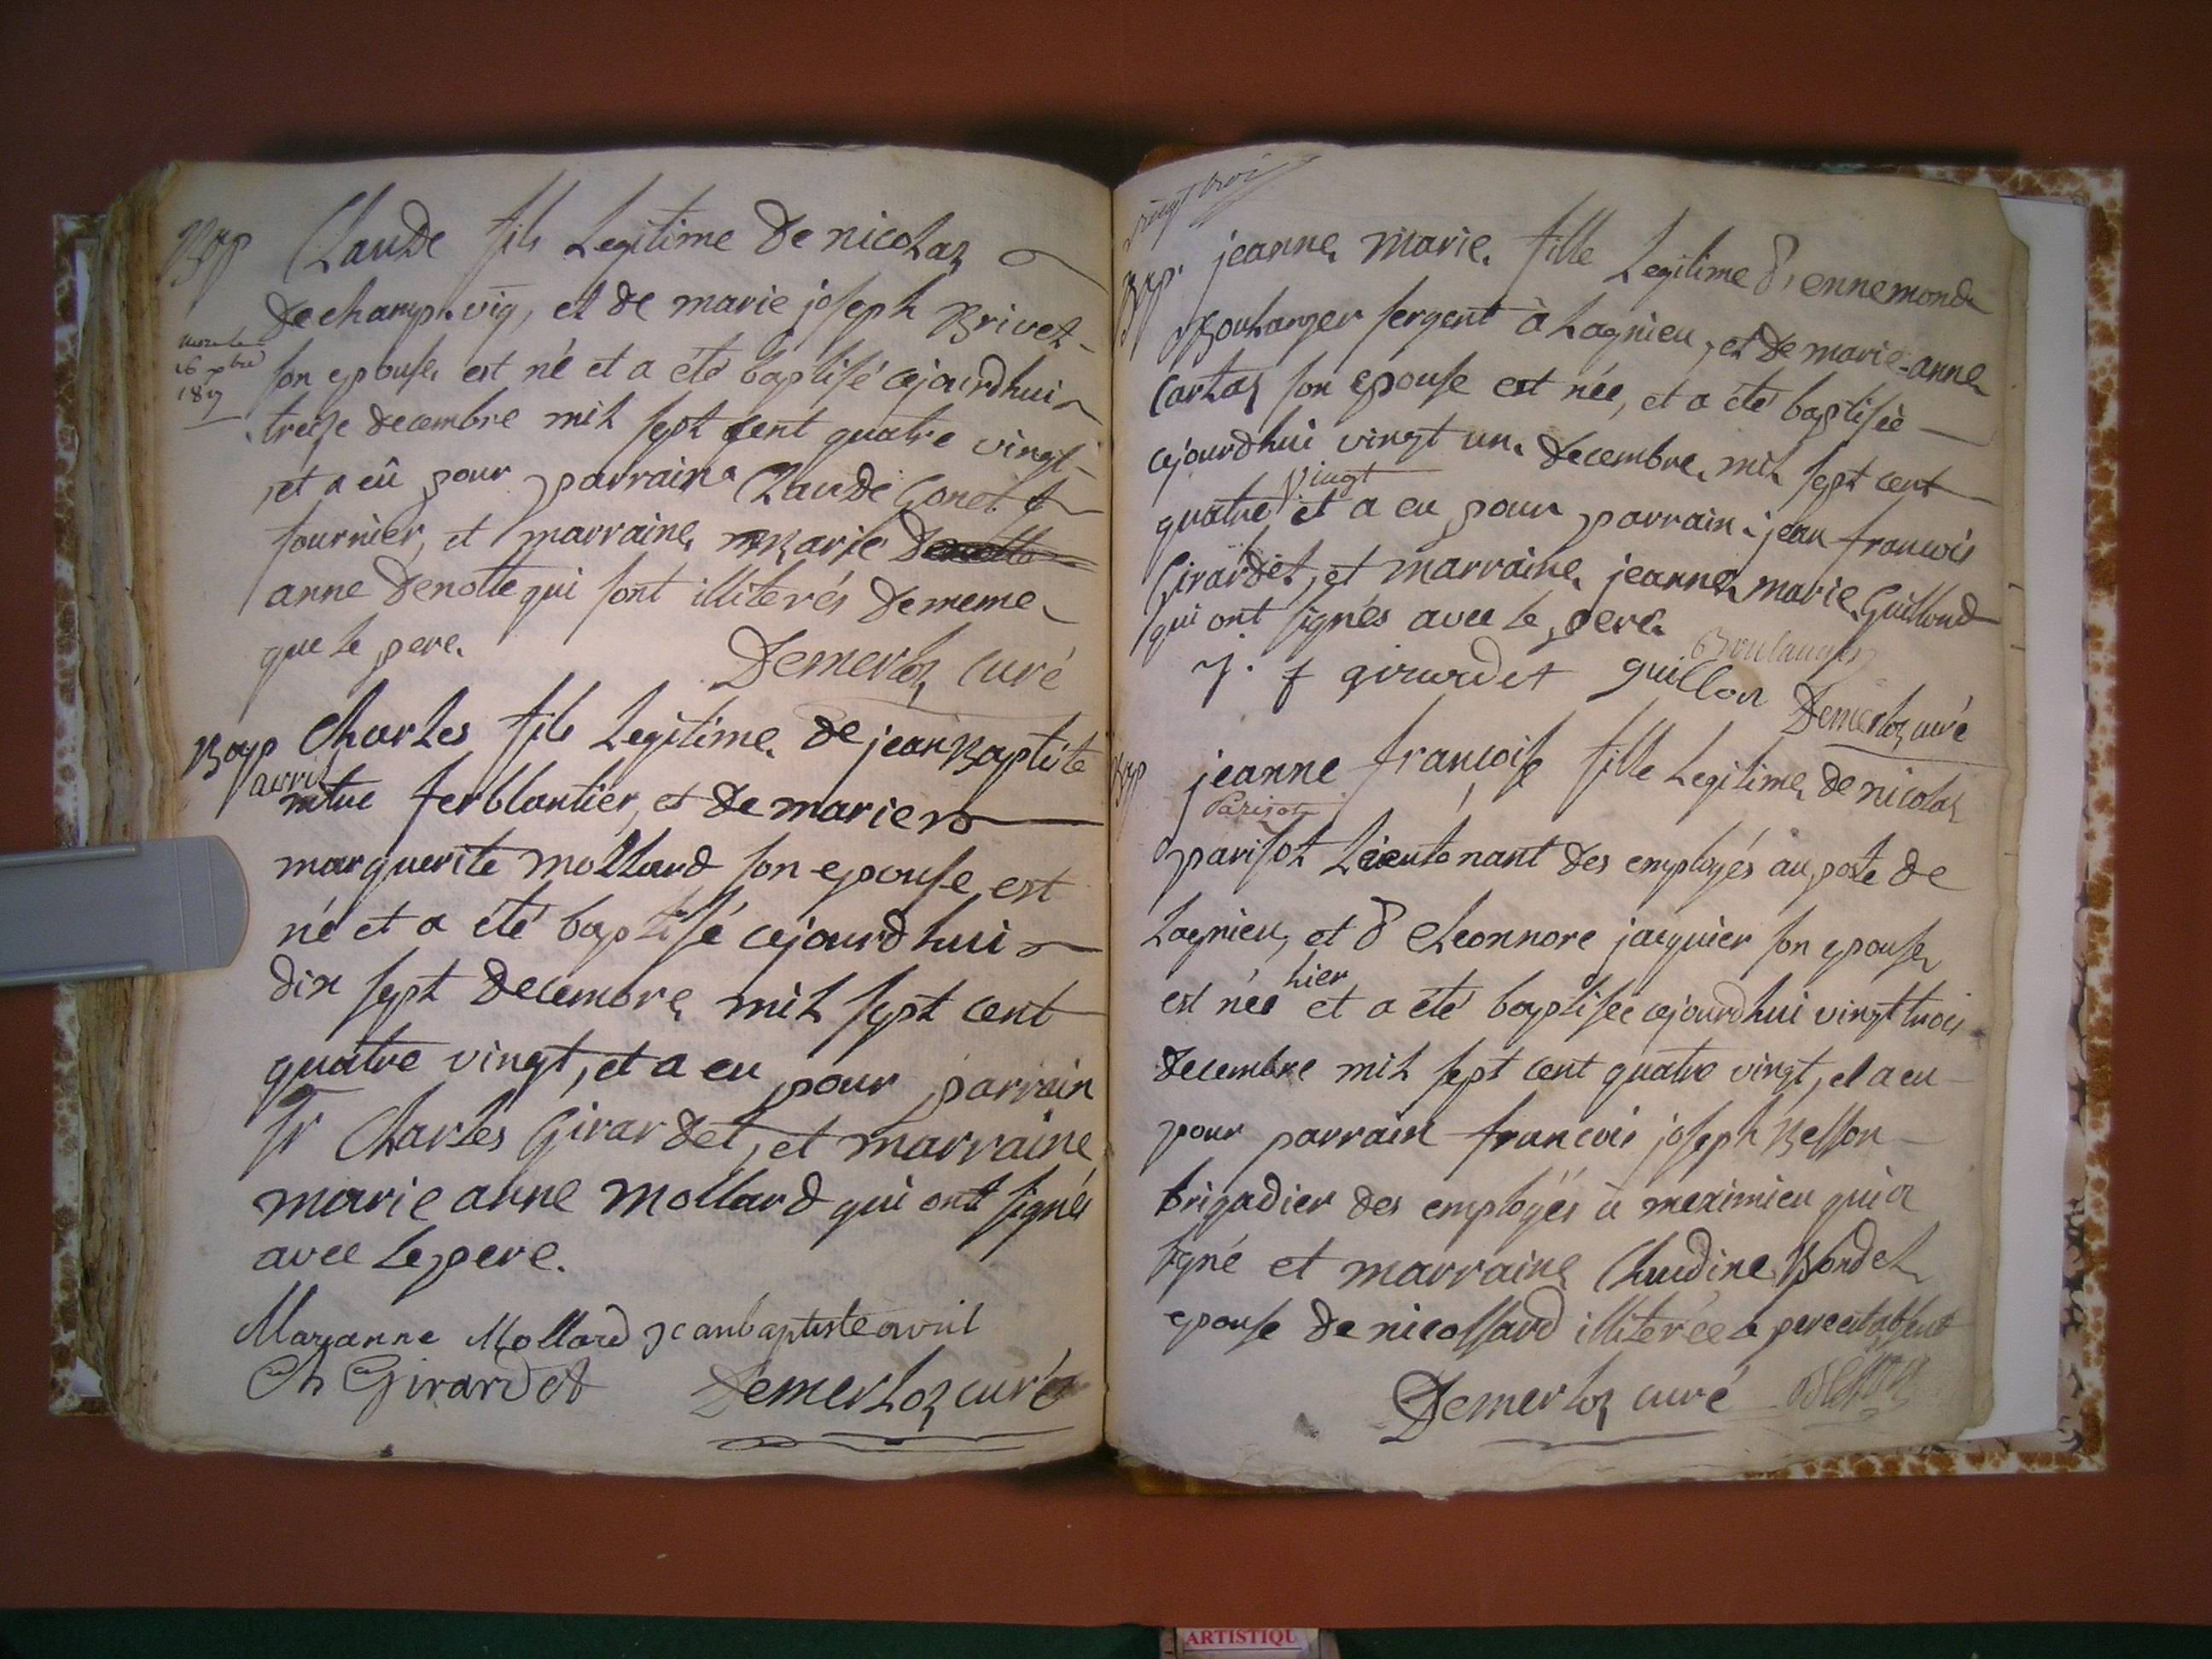 Bap Claude fils Legitime de nicolas
Dechamp. vig, et de marie joseph Brivet
son epouse, est né et a été baptisé cejourdhui
16 xbre
treize decembre mil sept cent quatre vingt
et a eû pour parrain Claude Gonet
fournier, et marraine, marie
anne Denotte qui sont illiterés de meme
que le pere.
Demerloz curé
Bap Charles fils Legitime, de jean Baptiste
avril
ferblantier, et de marie
marguerite mollard son epouse, est
né et a été baptisé cejourdhui
dix sept decembre, mil sept cent
quatre vingt, et a eu pour parrain
sr Charles Girardet, et marraine
marie anne mollard qui ont signés
avec le pere.
Marianne Mollard jeanbaptiste avril
Ch Girardet Demerloz curé
vingt troi
Bap. jeanne, marie, fille Legitime d'ennemond
Boulanger sergent à Lagnieu, et de marie-anne
Carlaz son epouse est née, et a été baptisée
cejourdhui vingt un, decembre, mil sept cent
vingt
quatre et a eu pour parrain jean francois
Girardet, et marraine, jeanne, marie Guillond
qui ont signés avec le pere.
Boulanger
j. f girardet guillon
Demerloz curé
Bap jeanne françoise fille Legitime, de nicolas
Parisot
parisot Lieutenant des employés au poste de
Lagnieu, et d'Eleonnore jacquier son epouse,
hier
est née et a été baptisée cejourdhui vingt trois
decembre mil sept cent quatre vingt, et a eu
pour parrain francois joseph Besson
brigadier des employés à meximieu qui a
signé et marraine, Claudine Bondet
epouse de nicollard illiterée le pere est absent
Demerloz curé
ARTISTIQU